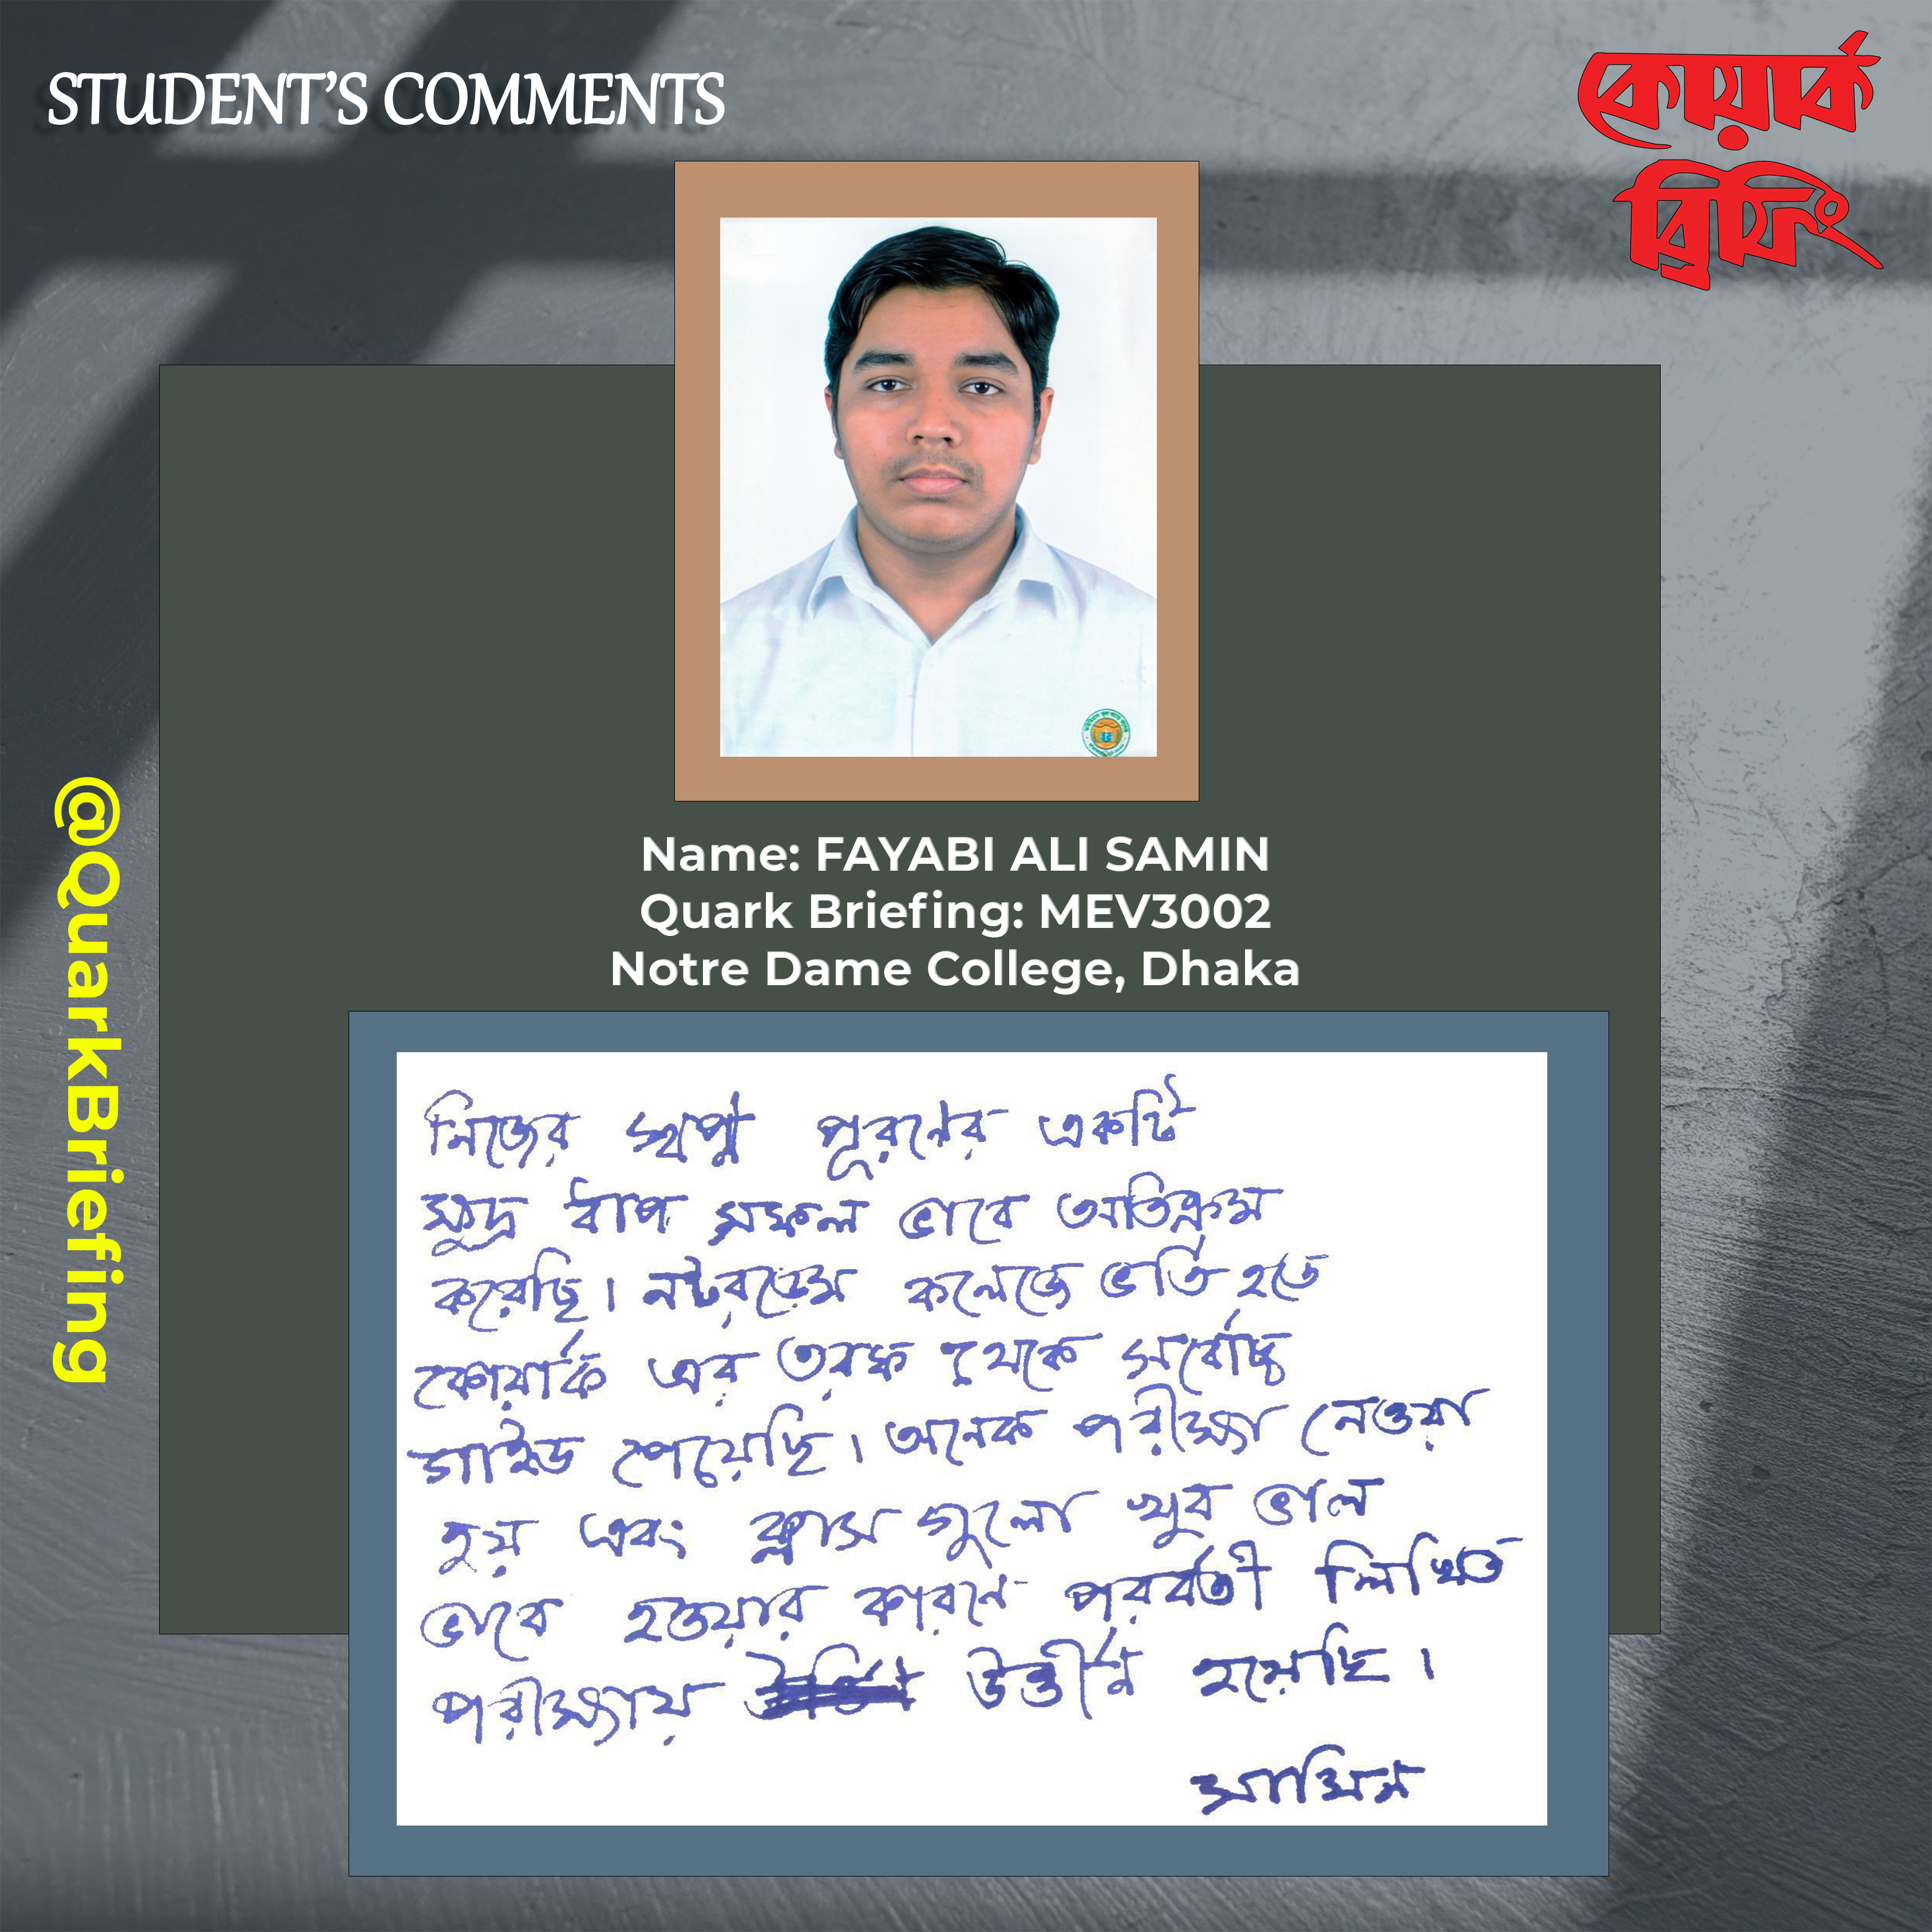 STUDENT'S COMMENTS
কোয়ার্ক
ব্রিফিং
Name: FAYABI ALI SAMIN
Quark Briefing: MEV3002
Notre Dame College, Dhaka
@QuarkBriefing
নিজের স্বপ্ন পূরনের একটি
ক্ষুদ্র ধাপ সফল ভাবে অতিক্রম
করেছি। নটরডেম কলেজে ভর্তি হতে
কোয়ার্ক এর তরফ থেকে সর্বোচ্চ
গাইড পেয়েছি। অনেক পরীক্ষা নেওয়া
হয় এবং ক্লাস গুলো খুব ভাল
ভাবে হওয়ার কারনে পরবর্তী লিখিত
পরীক্ষায় উত্তীর্ণ হয়েছি।
সামিন